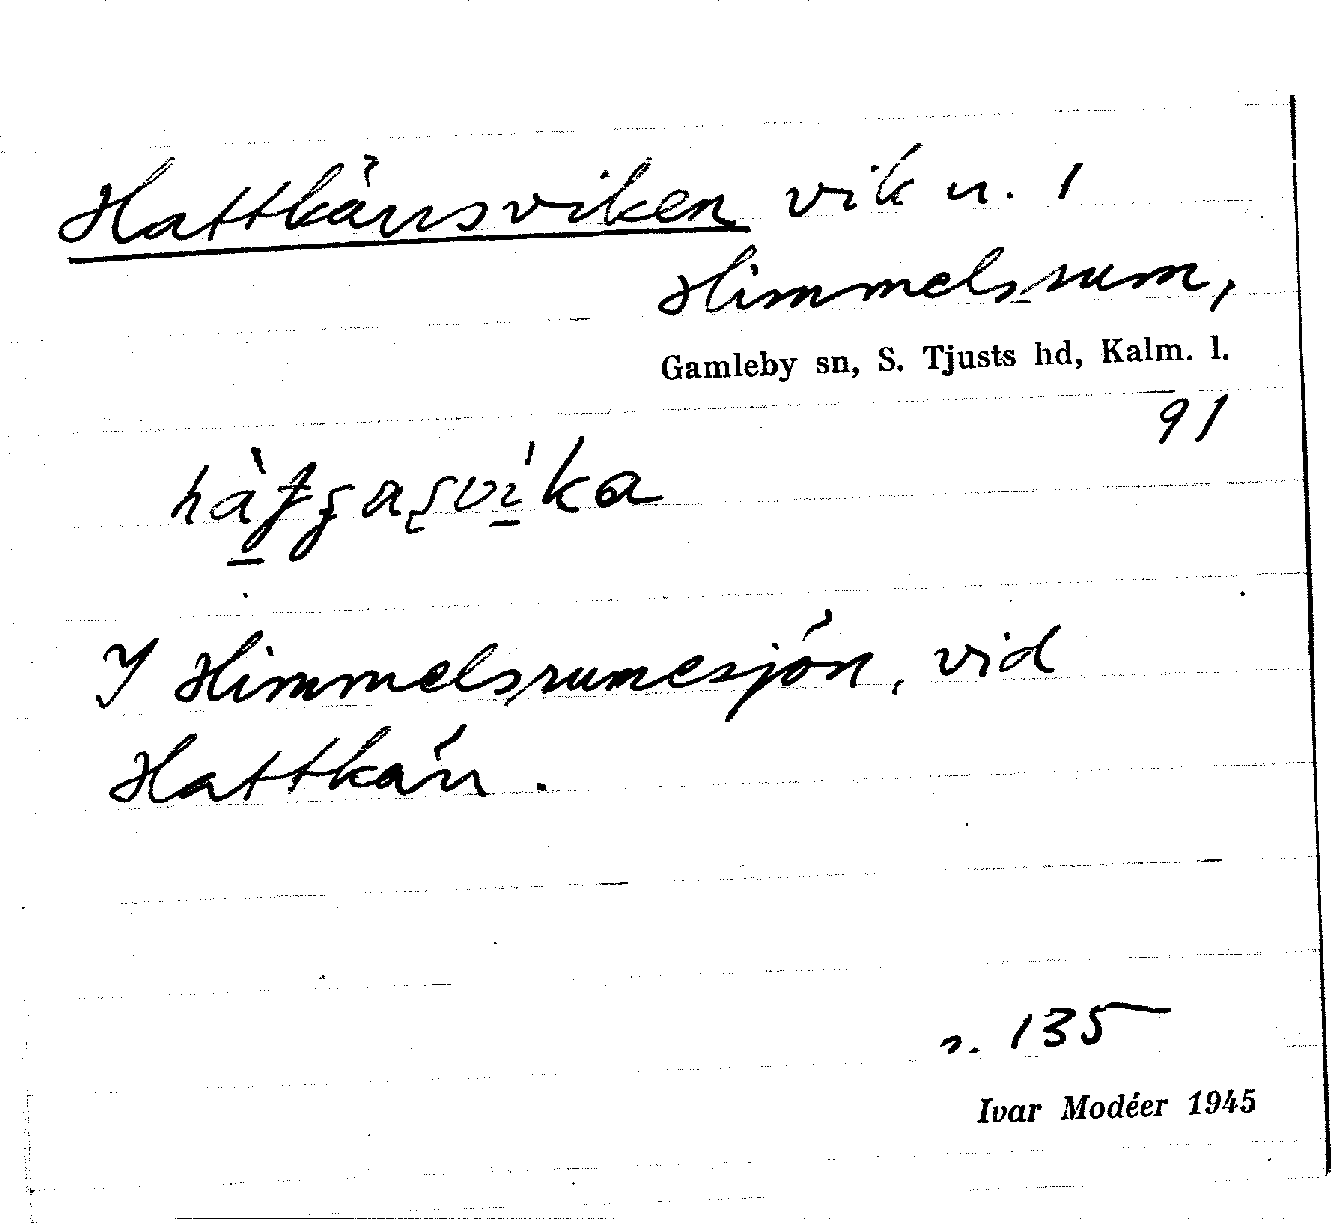 Hattkärrsviken vik u. 1
Himmelsrum,
Gamleby sn, S. Tjusts hd, Kalm. l.
91
I Himmelsrumesjön, vid
Hattkärr.
s. 135
Ivar Modéer 1945